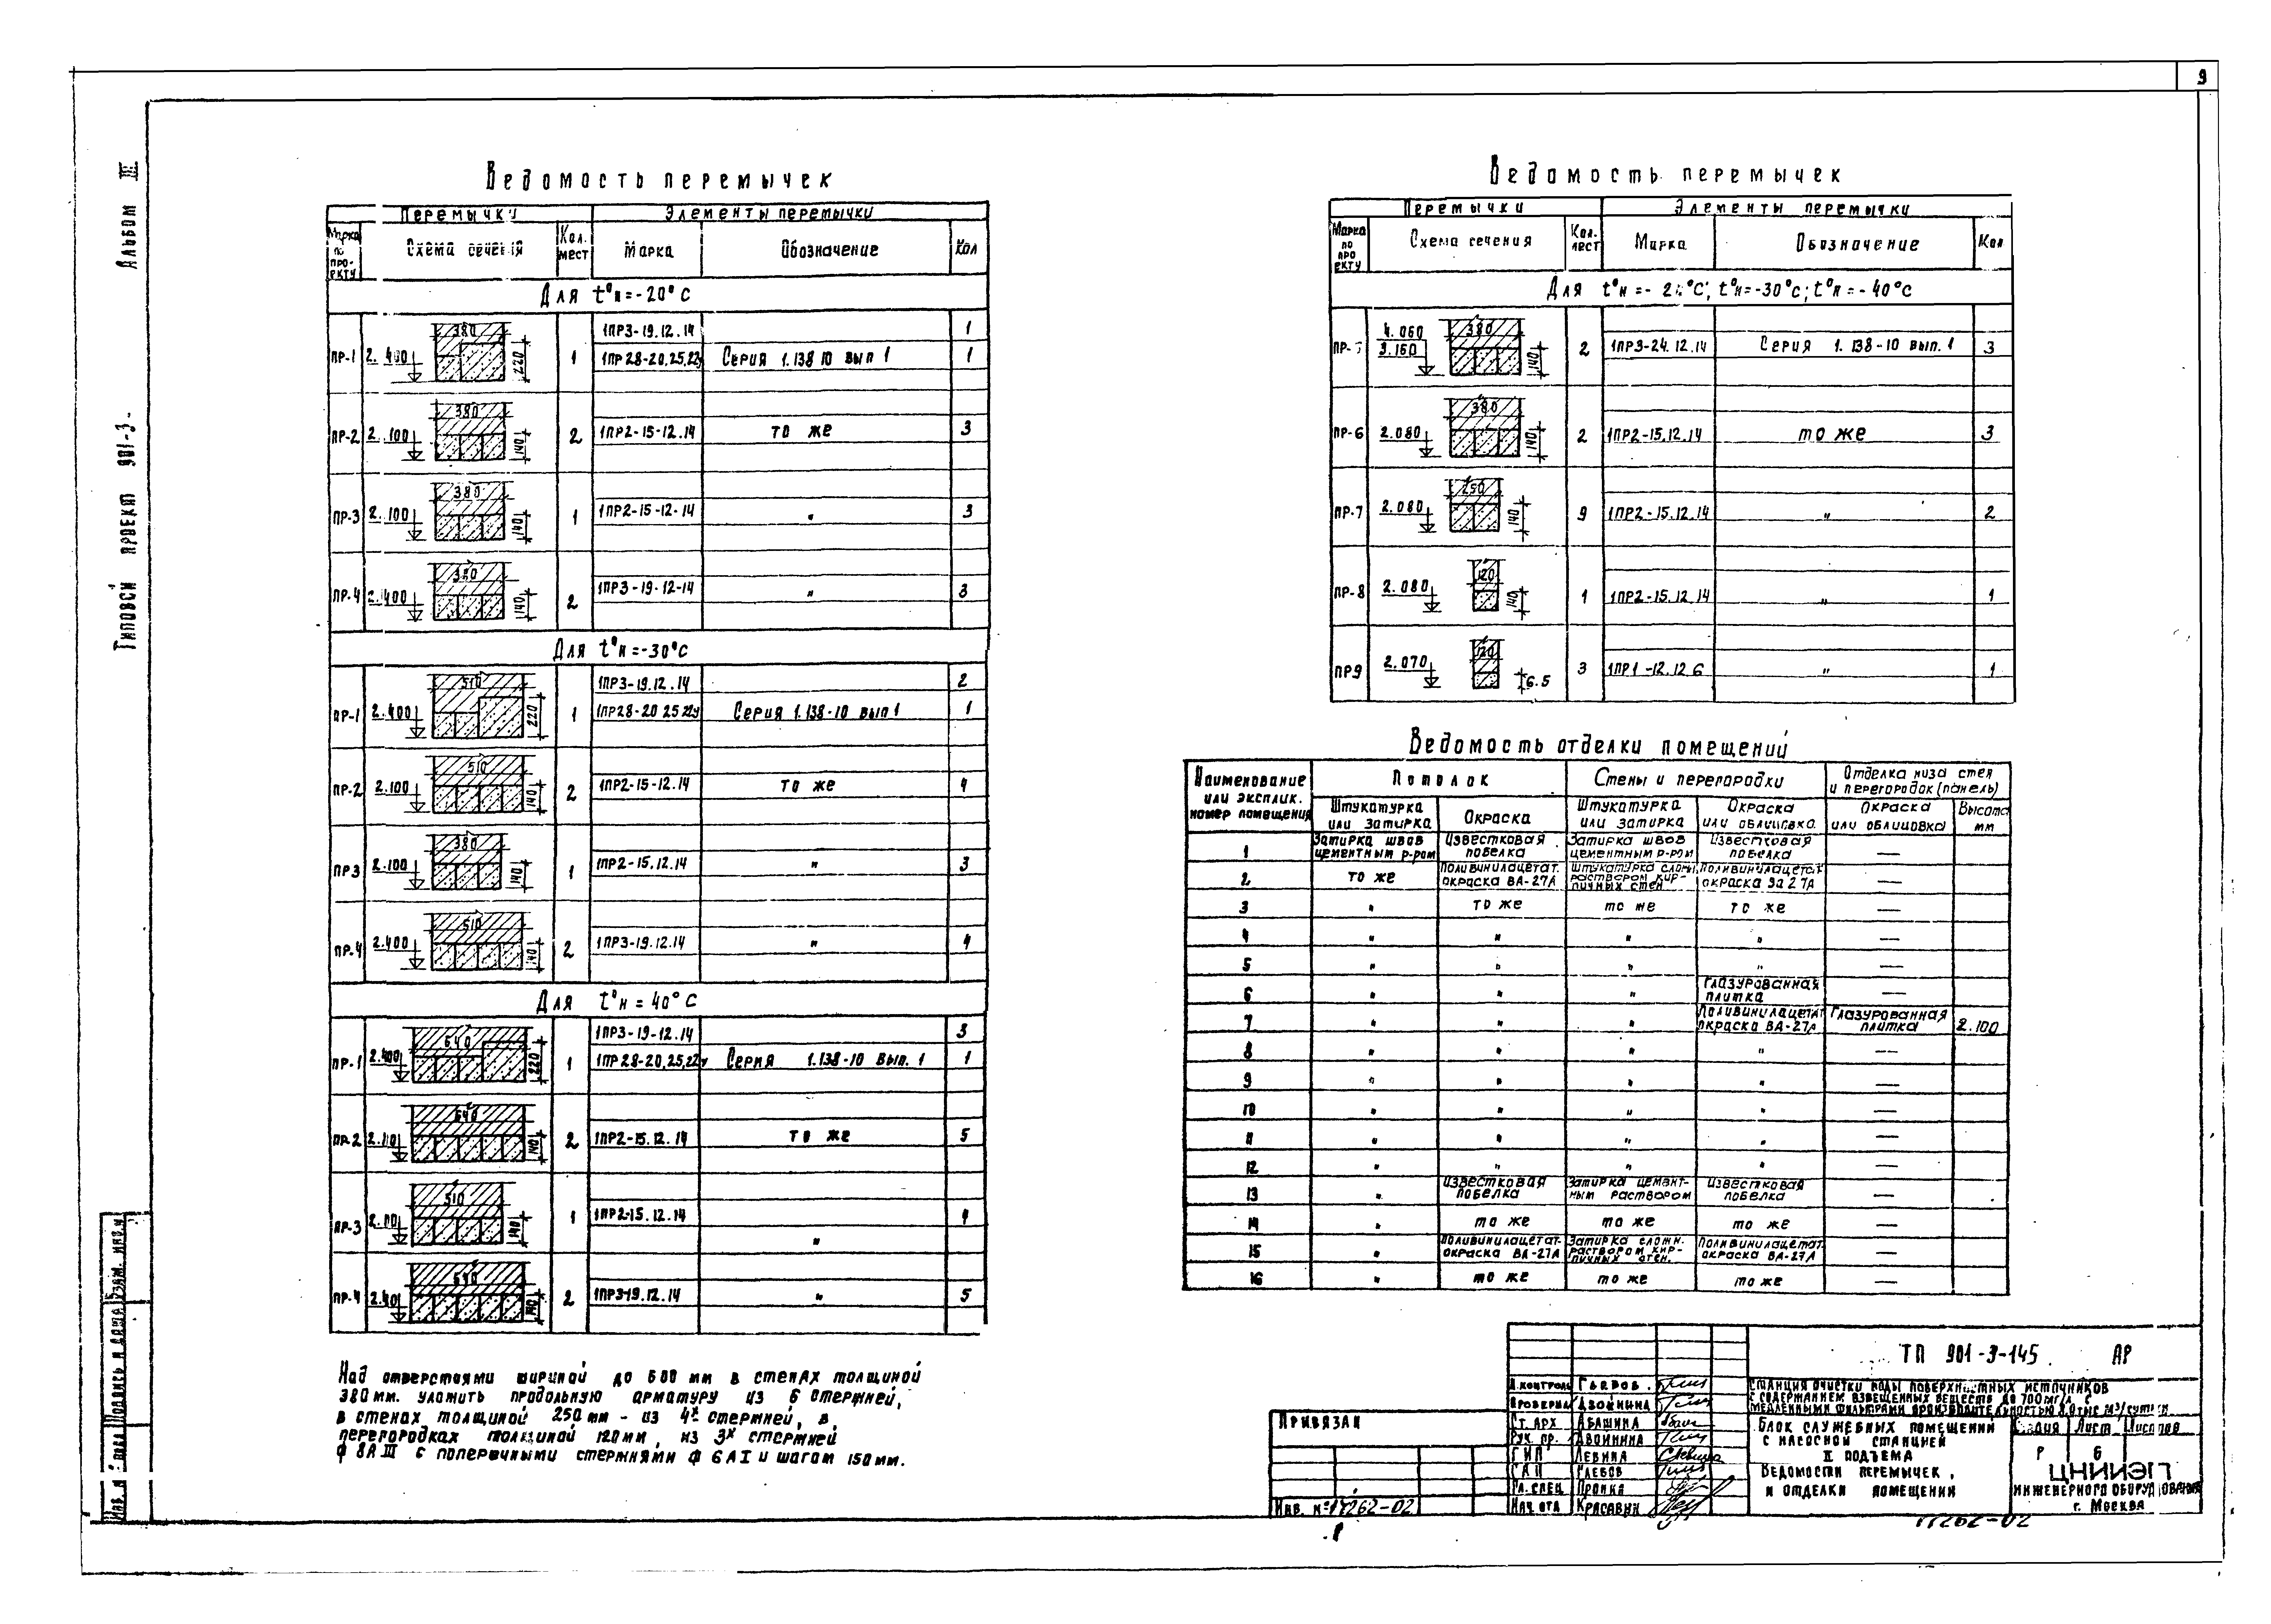 9
Альбом III
Типовой проект 901-3.
Ведомость перемычек
Перемычки Элементы перемычки
Марка по проекту Схема сечения Кол. мест Марка Обозначение Кол
Для t°н=-20°С
ПР-1 2.400 380 220 1 1ПР3-19.12.14 1
1ПР28-20.25.22у Серия 1.138 10 вып 1 1
ПР-2 2.100 380 140 2 1ПР2-15-12.14 то же 3
ПР-3 2.100 380 140 1 1ПР2-15-12-14 " 3
ПР-4 2.400 380 140 2 1ПР3-19-12-14 " 3
Для t°н=-30°С
ПР-1 2.400 510 220 1 1ПР3-19.12.14 2
1ПР28-20 25 22у Серия 1.138-10 вып 1 1
ПР-2 2.100 510 140 2 1ПР2-15-12.14 то же 4
ПР3 2.100 380 140 1 1ПР2-15.12.14 " 3
ПР-4 2.400 510 140 2 1ПР3-19.12.14 " 4
Для t°н=40°С
ПР-1 2.400 640 220 1 1ПР3-19-12.14 3
1ПР28-20,25,22у Серия 1.138-10 Вып. 1 1
ПР-2 640 140 2 1ПР2-15.12.14 то же 5
ПР-3 510 140 1 1ПР2-15.12.14 " 4
ПР-4 640 140 2 1ПР3-19.12.14 " 5
Над отверстиями шириной до 600 мм в стенах толщиной
380мм. уложить продольную арматуру из 6 стержней,
в стенах толщиной 250мм - из 4х стержней, в
перегородках толщиной 120мм, из 3х стержней
ф 8АIII с поперечными стержнями ф 6АI и шагом 150мм.
Ведомость перемычек
Перемычки Элементы перемычки
Марка по проекту Схема сечения Кол. мест Марка Обозначение Кол
Для t°н=-20°С; t°н=-30°С; t°н=-40°С
ПР- 4.060 3.160 380 140 2 1ПР3-24.12.14 Серия 1.138-10 вып.1 3
ПР-6 2.080 380 140 2 1ПР2-15.12.14 то же 3
ПР-7 2.080 250 140 9 1ПР2-15.12.14 " 2
ПР-8 2.080 120 140 1 1ПР2-15.12.14 " 1
ПР9 2.070 120 6.5 3 1ПР1-12.12 6 " 1
Ведомость отделки помещений
Наименование или эксплик. номер помещения Потолок Стены и перегородки Отделка низа стен и перегородок (панель)
Штукатурка или затирка Окраска Штукатурка или затирка Окраска или облицовка Окраска или облицовка Высота мм
1 Затирка швов цементным р-ром Известковая побелка Затирка швов цементным р-ром Известковая побелка —
2 то же Поливинилацетат. окраска ВА-27А Штукатурка сложн. раствором кирпичных стен Поливинилацетат. окраска За27А —
3 " то же то же то же —
4 " " " " —
5 " " " " —
6 " " " Глазурованная плитка —
7 " " " Поливинилацетат окраска ВА-27А Глазурованная плитка 2.100
8 " " " " —
9 " " " " —
10 " " " " —
11 " " " " —
12 " " " " —
13 " Известковая побелка Затирка цементным раствором Известковая побелка —
14 " то же то же то же —
15 " Поливинилацетат. окраска ВА-27А Затирка сложн. раствором кирпичных стен. Поливинилацетат. окраска ВА-27А —
16 " то же то же то же —
Привязан
Инв. №17262-02
ТП 901-3-145 АР
Н.контроль
Проверил Двойнина
Ст. арх Абашина
Рук. пр. Двойнина
ГИП Левина
ГАП Глебов
Гл. спец Пронка
Нач. отд Красавин
Станция очистки воды поверхностных источников
с содержанием взвешенных веществ до 700мг/л с
медленными фильтрами производительностью тыс м³/сутки
Блок служебных помещений
с насосной станцией
II подъема
Ведомости перемычек,
и отделки помещений
Стадия Лист Листов
Р 6
ЦНИИЭП
инженерного оборудования
г. Москва
17262-02
Инв. № подл Подпись и дата Взам. инв.№